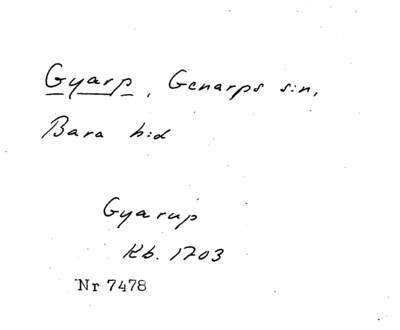 Gyarp, Genarps s:n,
Bara h:d
Gyarup
Kb. 1703
Nr 7478